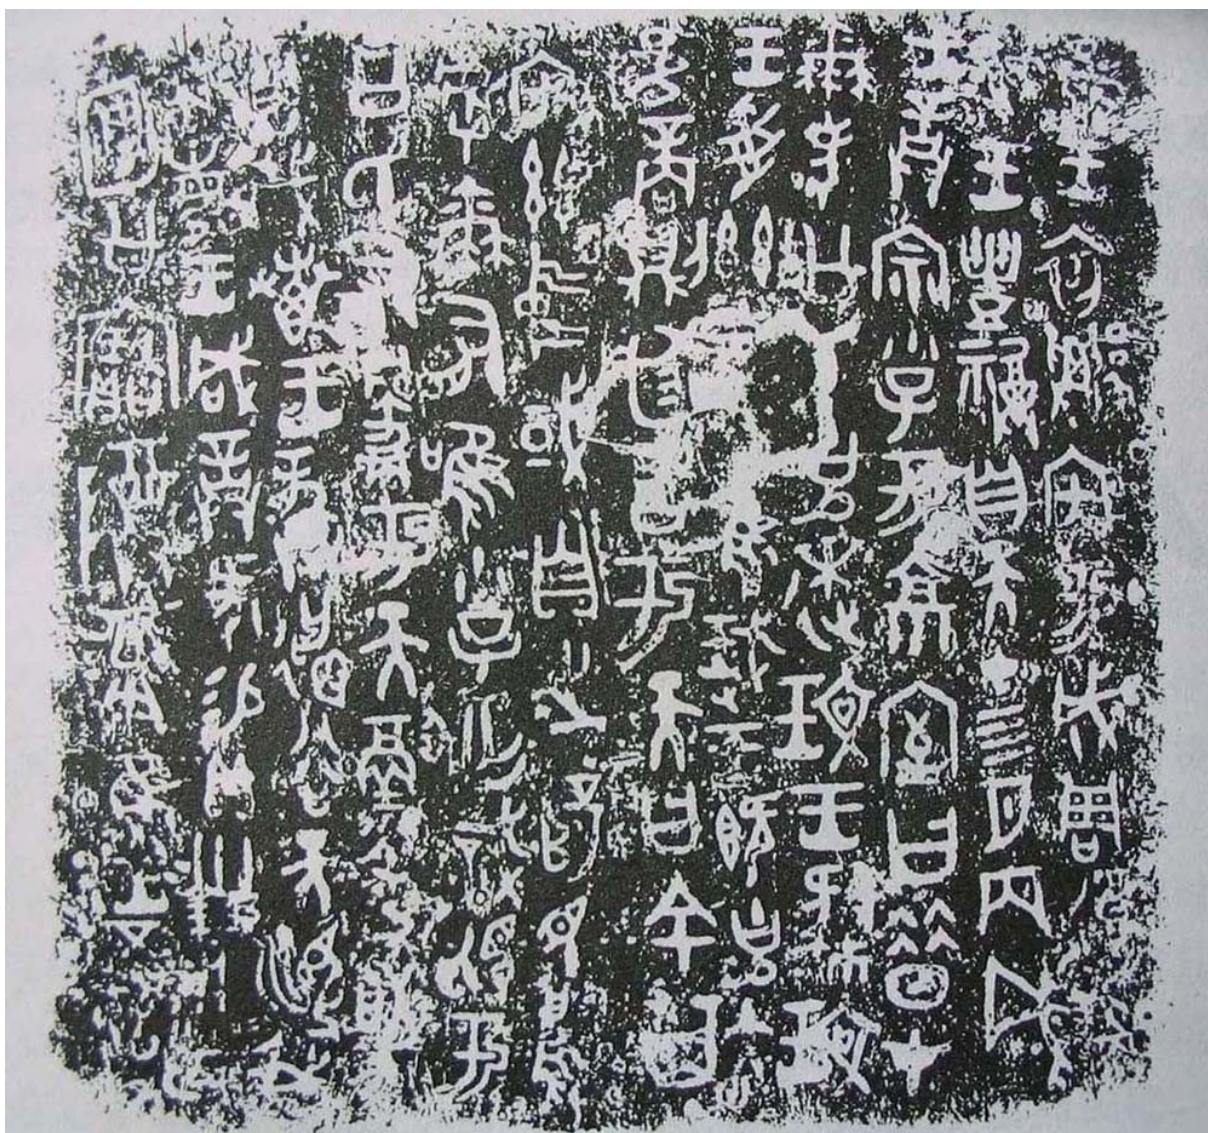 隹王初遷宅于成周復禀
珷王豊祼自天才四月丙戌
王誥宗小子于京室曰昔才
爾考公氏克逨玟王肆玟
王受茲隹珷王既克大
邑商則廷告于天曰余其
宅茲中或自之乂民烏
虖爾有唯小子亡識視于
公氏有爵于天徹令敬
享哉叀王恭德谷天順我
不敏王咸誥何易貝卅朋用乍
公寶尊彝隹王五祀